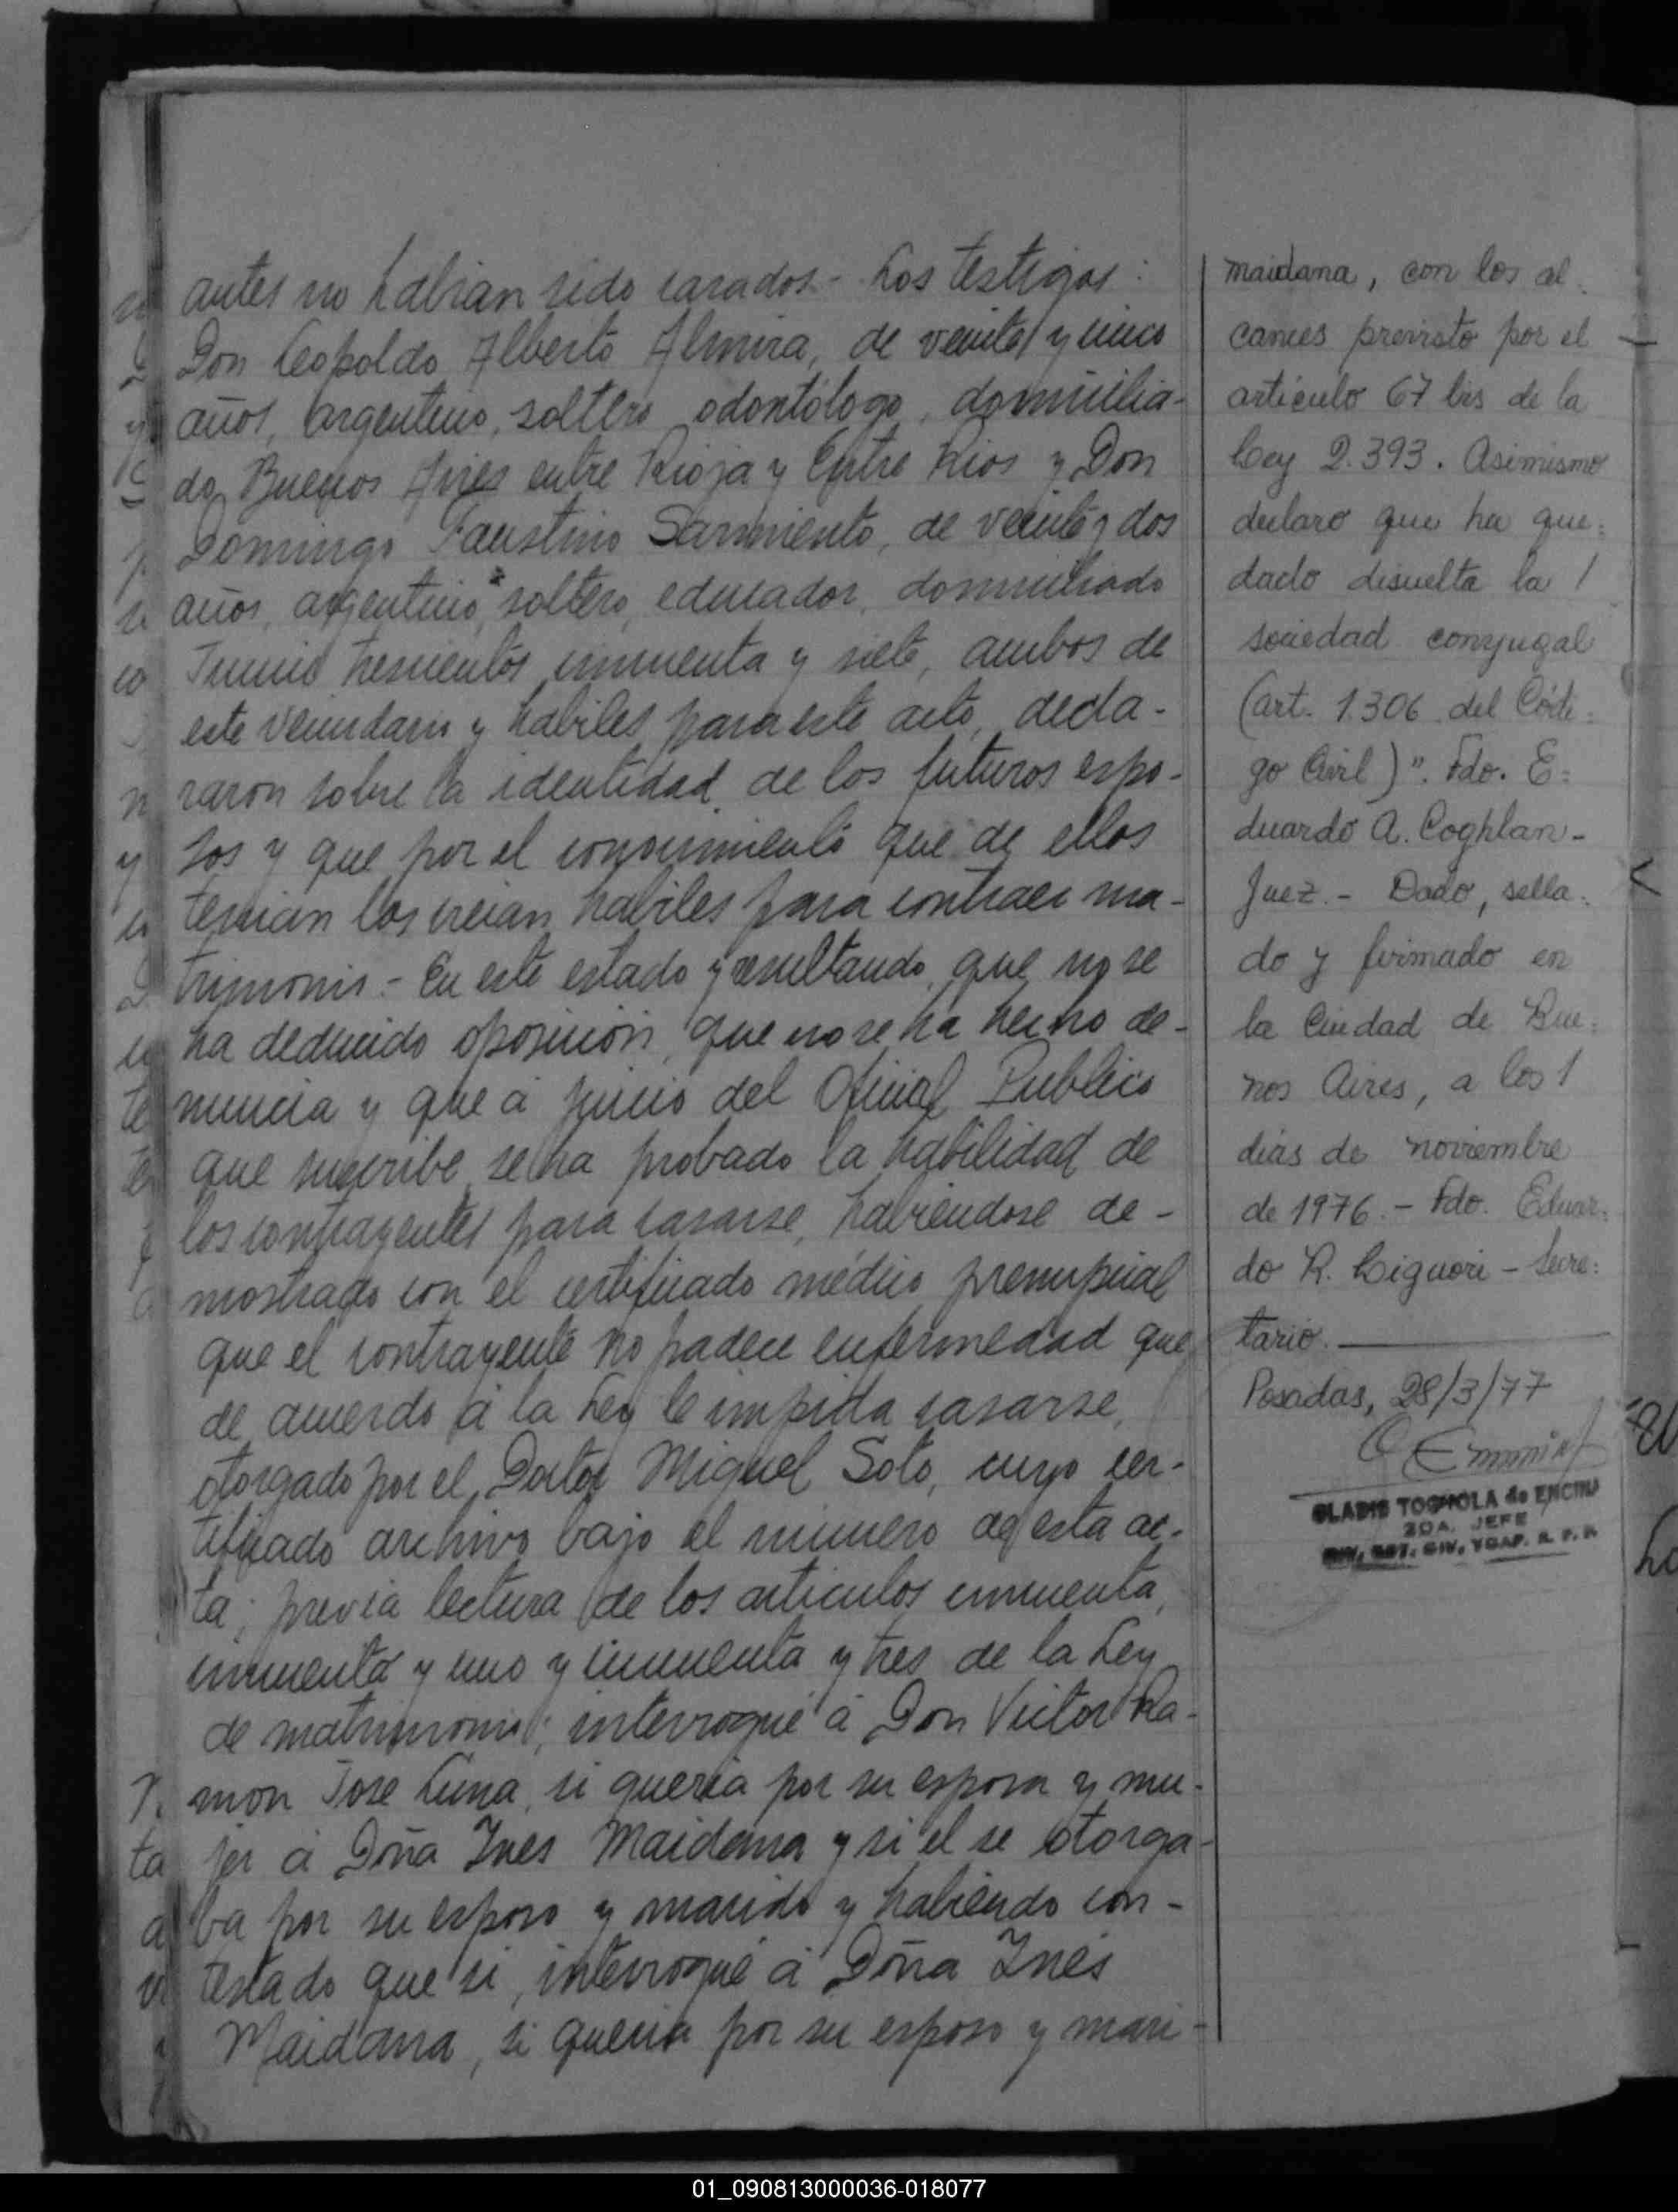 antes no habian sido casados.- Los testigos:
Don Leopoldo Alberto Almira, de veinte y cinco
años, argentino, soltero, odontólogo, domicilia-
do Buenos Aires entre Rioja y Entre Rios y Don
Domingo Faustino Sarmiento, de veinte y dos
años, argentino, soltero, educador, domiciliado
Junin trescientos cincuenta y siete, ambos de
este vecindario y habiles para este acto, decla-
raron sobre la identidad de los futuros espo-
sos y que por el conocimiento que de ellos
tenian los creian habiles para contraer ma-
trimonio.- En este estado y resultando, que no se
ha deducido oposicion, que no se ha hecho de-
nuncia y que á juicio del Oficial Publico
que suscribe, se ha probado la habilidad de
los contrayentes para casarse, habiendose de-
mostrado con el certificado médico prenupcial
que el contrayente no padece enfermedad que
de acuerdo á la Ley le impida casarse,
otorgado por el Doctor Miguel Soto, cuyo cer-
tificado archivo bajo el numero de esta ac-
ta; previa lectura de los articulos cincuenta,
cincuenta y uno y cincuenta y tres de la Ley
de matrimonio; interrogué á Don Victor Ra-
mon Jose Luna, si queria por su esposa y mu-
jer á Doña Ines Maidana y si el se otorga-
ba por su esposo y marido y habiendo con-
testado que si, interrogué á Doña Inés
Maidana, si queria por su esposo y mari-
maidana, con los al=
cances previsto por el
artículo 67 bis de la
Ley 2.393. Asimismo
declaro que ha que=
dado disuelta la /
sociedad conyugal
(art. 1.306 del Códi=
go Civil)". Fdo. E=
duardo A. Coghlan-
Juez.- Dado, sella=
do y firmado en
la Ciudad de Bue=
nos Aires, a los 1
días de noviembre
de 1976.- Fdo. Eduar=
do R. Liguori - Secre=
tario.
Posadas, 28/3/77
GLADIS TOGNOLA de ENCINA
2DA. JEFE
01_090813000036-018077